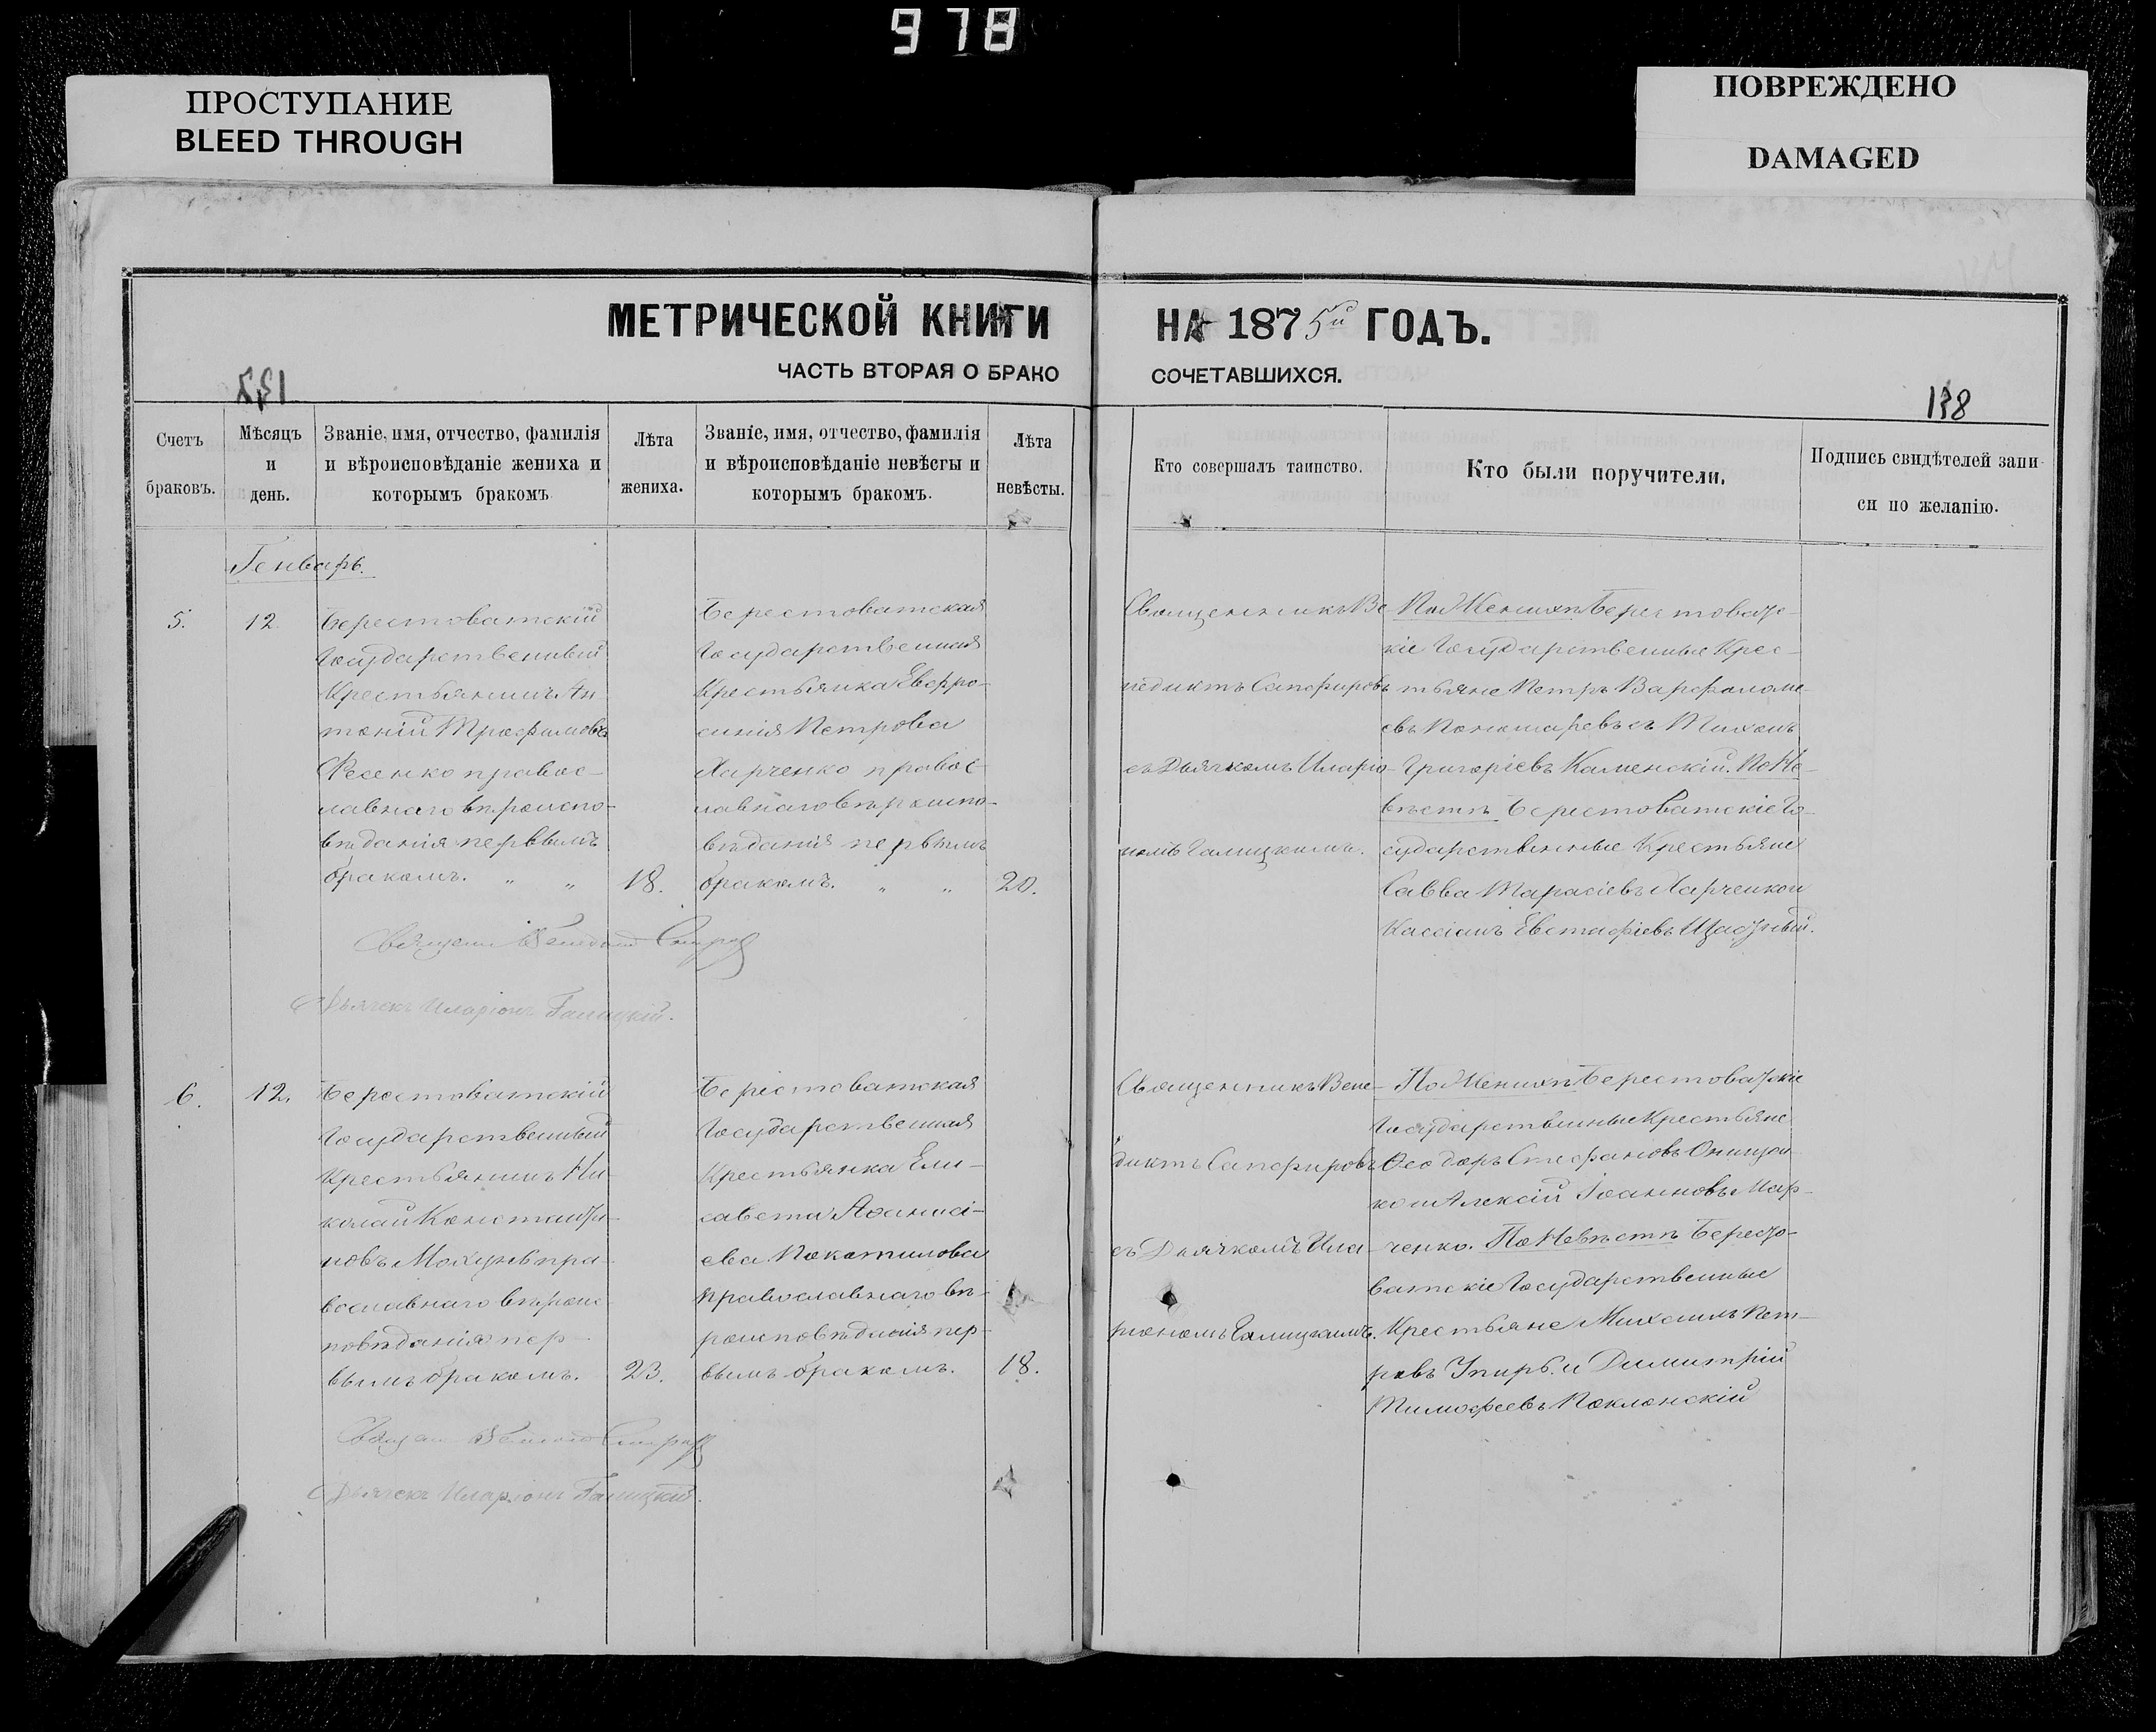 978
ПРОСТУПАНИЕ
BLEED THROUGH
ПОВРЕЖДЕНО
DAMAGED
МЕТРИЧЕСКОЙ КНИГИ НА 1875й ГОДЪ.
ЧАСТЬ ВТОРАЯ О БРАКОСОЧЕТАВШИХСЯ.
138
Счетъ
браковъ.
Мѣсяцъ
и
день.
Званіе, имя, отчество, фамилія
и вѣроисповѣданіе жениха и
которымъ бракомъ
Лѣта
жениха.
Званіе, имя, отчество, фамилія
и вѣроисповѣданіе невѣсты и
которымъ бракомъ.
Лѣта
невѣсты.
Кто совершалъ таинство.
Кто были поручители.
Подпись свидѣтелей запи-
си по желанію.
Генварь.
5.
12.
Берестоватскій
Государственный
Крестьянинъ Ан-
тоній Трофимовъ
Фесенко правос-
лавнаго вѣроиспо-
вѣданія первымъ
бракомъ. „ „
18.
Берестоватская
Государственная
Крестьянка Евфро-
синія Петрова
Харченко правос-
лавнаго вѣроиспо-
вѣданія первымъ
бракомъ. „ „
20.
Священникъ Ве
недиктъ Сапфировъ
съ Дьячкомъ Иларіо-
номъ Галицкимъ.
По Женихѣ Берестоват-
кіе Государственные Крес-
тьяне Петръ Варфоломе-
евъ Пономаревъ и Тихонъ
Григоріевъ Каменскій. По Не-
вѣстѣ Берестоватскіе Го-
сударственные Крестьяне
Савва Тарасіевъ Харченко и
Кассіанъ Евстафіевъ
Дьячекъ Иларіонъ Галицкій.
6.
12.
Берестоватскій
Государственный
Крестьянинъ Ни-
колай Константи-
новъ пра-
вославнаго вѣроис-
повѣданія пер-
вымъ бракомъ.
23.
Берестоватская
Государственная
Крестьянка Ели-
савета Аѳанасі-
ева Покотилова
православнаго вѣ-
роисповѣданія пер-
вымъ бракомъ.
18.
Священникъ Вене-
диктъ Сапфировъ
съ Дьячкомъ Ила-
ріономъ Галицкимъ.
По Женихѣ Берестоватскіе
Государственные Крестьяне
Ѳеодоръ Стефановъ
ко и Алексій Іоанновъ Мар-
ченко. По Невѣстѣ Бересто-
ватскіе Государственные
Крестьяне Михаилъ Пет-
ровъ Упирь и Димитрій
Тимофеевъ Поклонскій
Дьячекъ Иларіонъ Галицкій.